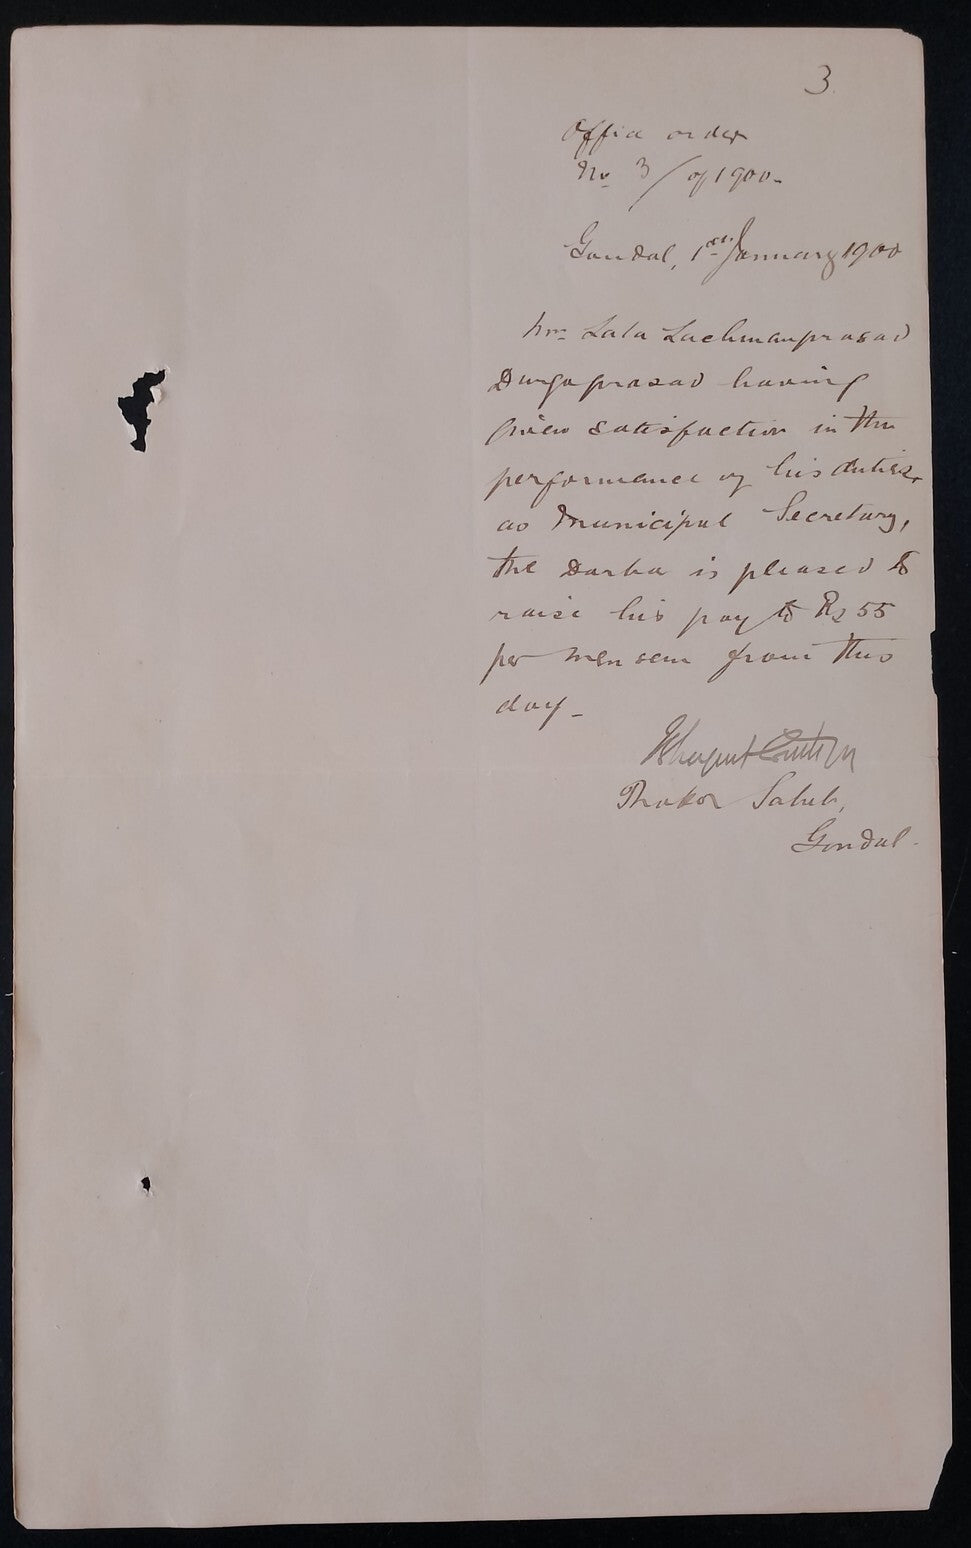 3
Office order
No 3/of 1900-
Gondal, 1st January 1900
Mr. Lala Lachmanprasad
Durgaprasad having
given satisfaction in the
performance of his duties
as Municipal Secretary,
the Darbar is pleased to
raise his pay to Rs 55
per mensem from this
day-
Thakor Saheb,
Gondal-